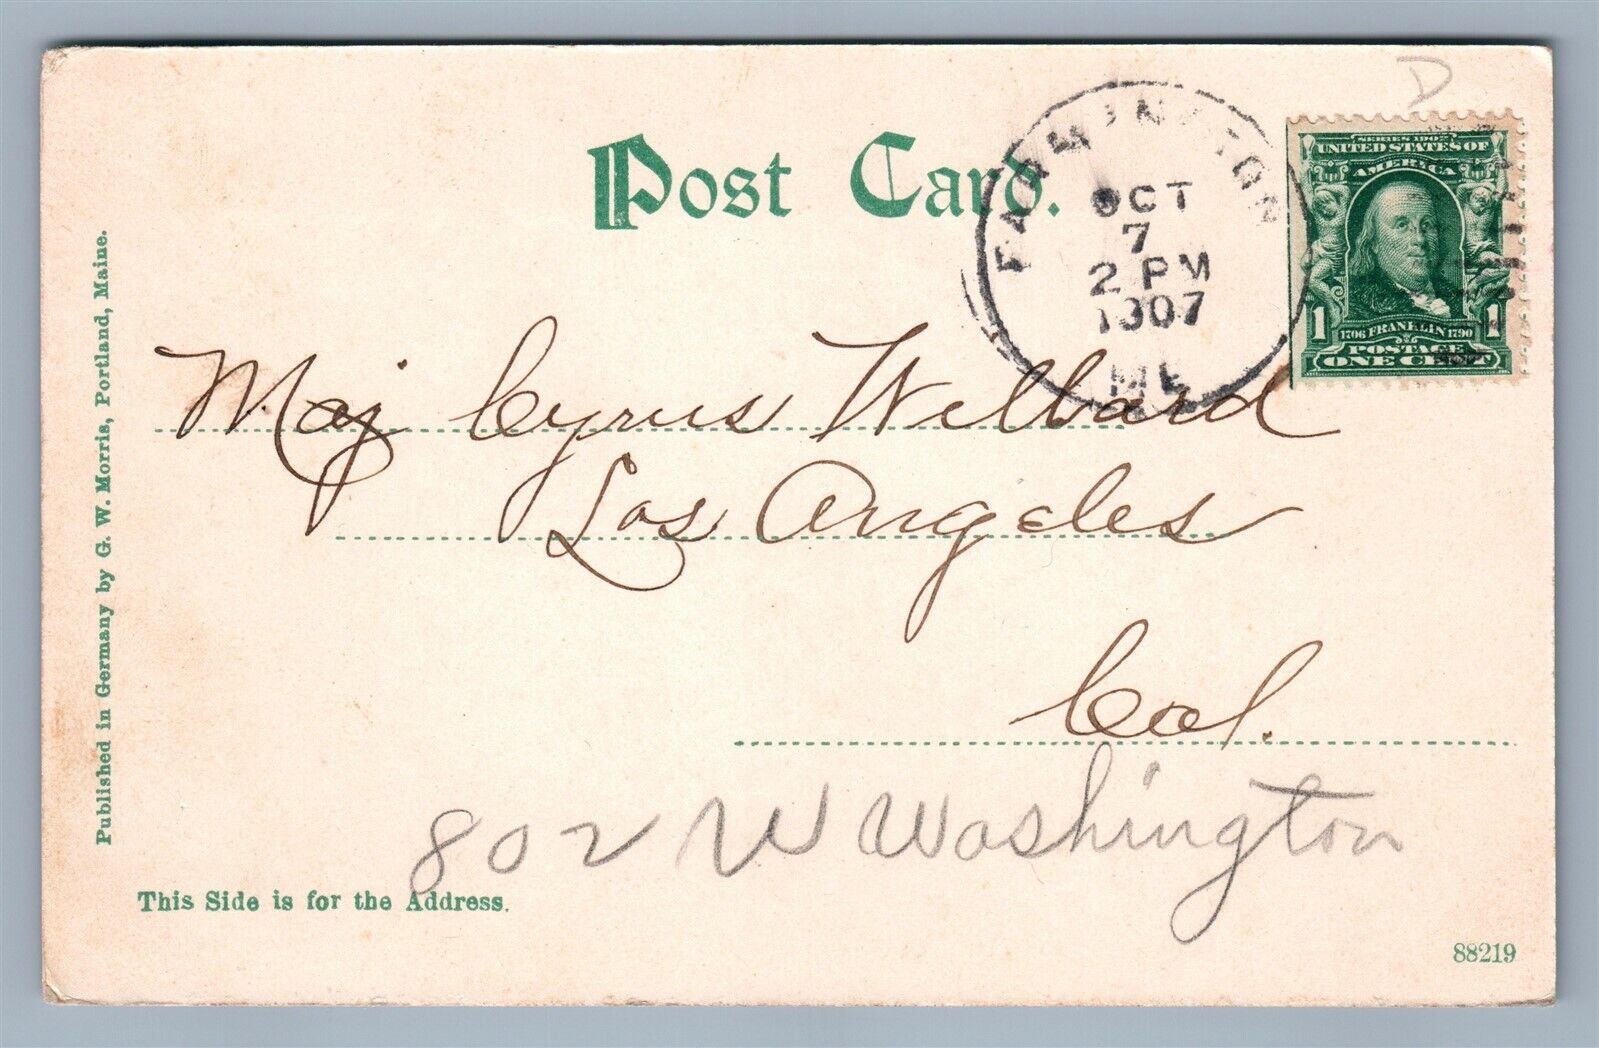 D
Post Card.
FARMINGTON
OCT
7
2 PM
1907
ME
SERIES 1902
UNITED STATES OF
AMERICA
1 1706 FRANKLIN 1790 1
POSTAGE
ONE CENT
Maj Cyrus Willard
Los Angeles
Cal.
802 W Washington
This Side is for the Address.
88219
Published in Germany by G. W. Morris, Portland, Maine.